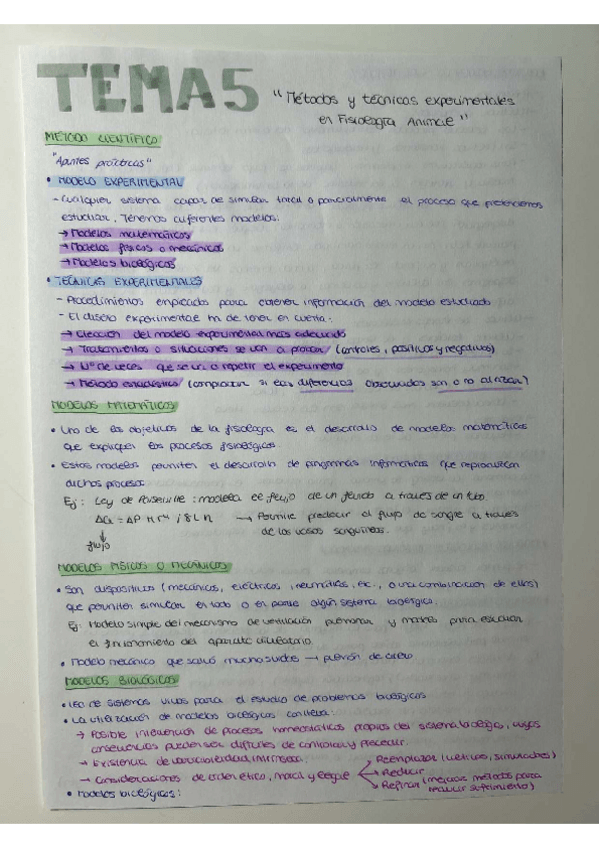 TEMA 5 "Métodos y técnicas experimentales
en Fisiología Animal"
MÉTODO CIENTÍFICO
"Apuntes prácticas"
• MODELO EXPERIMENTAL
- Cualquier sistema capaz de simular total o parcialmente el proceso que pretendemos
estudiar. Tenemos diferentes modelos:
→ Modelos matemáticos
→ Modelos físicos o mecánicos
→ Modelos biológicos
• TÉCNICAS EXPERIMENTALES
- Procedimientos empleados para obtener información del modelo estudiado
- El diseño experimental ha de tener en cuenta:
→ Elección del modelo experimental más adecuado
→ Tratamientos o situaciones se van a probar (controles, positivos y negativos)
→ Nº de veces que se va a repetir el experimento
→ Método estadístico (comprobar si las diferencias observadas son o no al azar)
MODELOS MATEMÁTICOS
• Uno de los objetivos de la fisiología es el desarrollo de modelos matemáticos
que expliquen los procesos fisiológicos.
• Estos modelos permiten el desarrollo de programas informáticos que reproduzcan
dichos procesos.
Ej: Ley de Poiseuille: modela el flujo de un fluido a través de un tubo.
ΔQ = ΔP π r⁴ / 8 L η → Permite predecir el flujo de sangre a través
↓ de los vasos sanguíneos.
flujo
MODELOS FÍSICOS O MECÁNICOS
• Son dispositivos (mecánicos, eléctricos, neumáticos, etc., o una combinación de ellos)
que permiten simular en todo o en parte algún sistema biológico.
Ej: Modelo simple del mecanismo de ventilación pulmonar y modelo para estudiar
el funcionamiento del aparato circulatorio.
• Modelo mecánico que salvó muchas vidas → pulmón de acero
MODELOS BIOLÓGICOS
• Uso de sistemas vivos para el estudio de problemas biológicos
• La utilización de modelos biológicos conlleva:
→ Posible interacción de procesos homeostáticos propios del sistema biológico, cuyas
consecuencias pueden ser difíciles de controlar y predecir.
→ Existencia de variabilidad intrínseca.
→ Consideraciones de orden ético, moral y legal
Reemplazar (cultivos, simulaciones)
Reducir
Refinar (mejorar métodos para
reducir sufrimiento)
• Modelos biológicos: